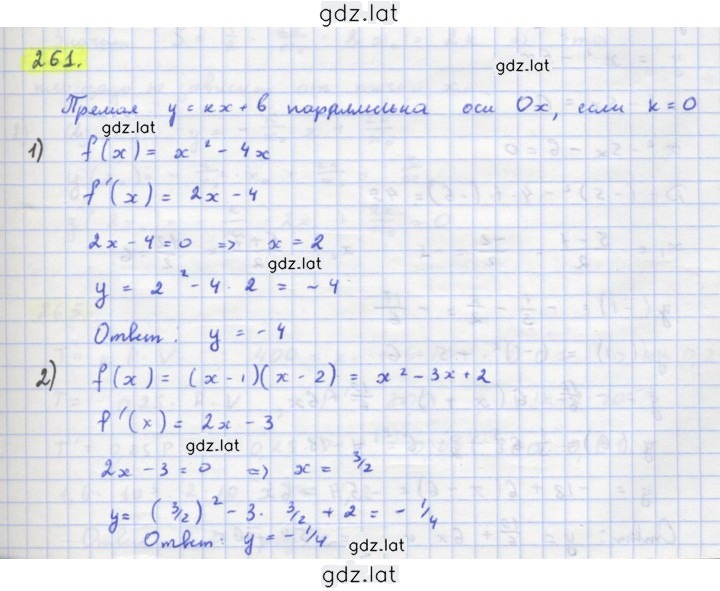 gdz.lat
261.
gdz.lat
Прямая y = kx + b параллельна оси Ox, если k = 0
gdz.lat
1) f(x) = x² - 4x
f'(x) = 2x - 4
2x - 4 = 0 => x = 2
gdz.lat
y = 2² - 4 · 2 = - 4
Ответ: y = - 4
2) f(x) = (x - 1)(x - 2) = x² - 3x + 2
f'(x) = 2x - 3
gdz.lat
2x - 3 = 0 => x = 3/2
y = (3/2)² - 3 · 3/2 + 2 = - 1/4
Ответ: y = - 1/4
gdz.lat
gdz.lat